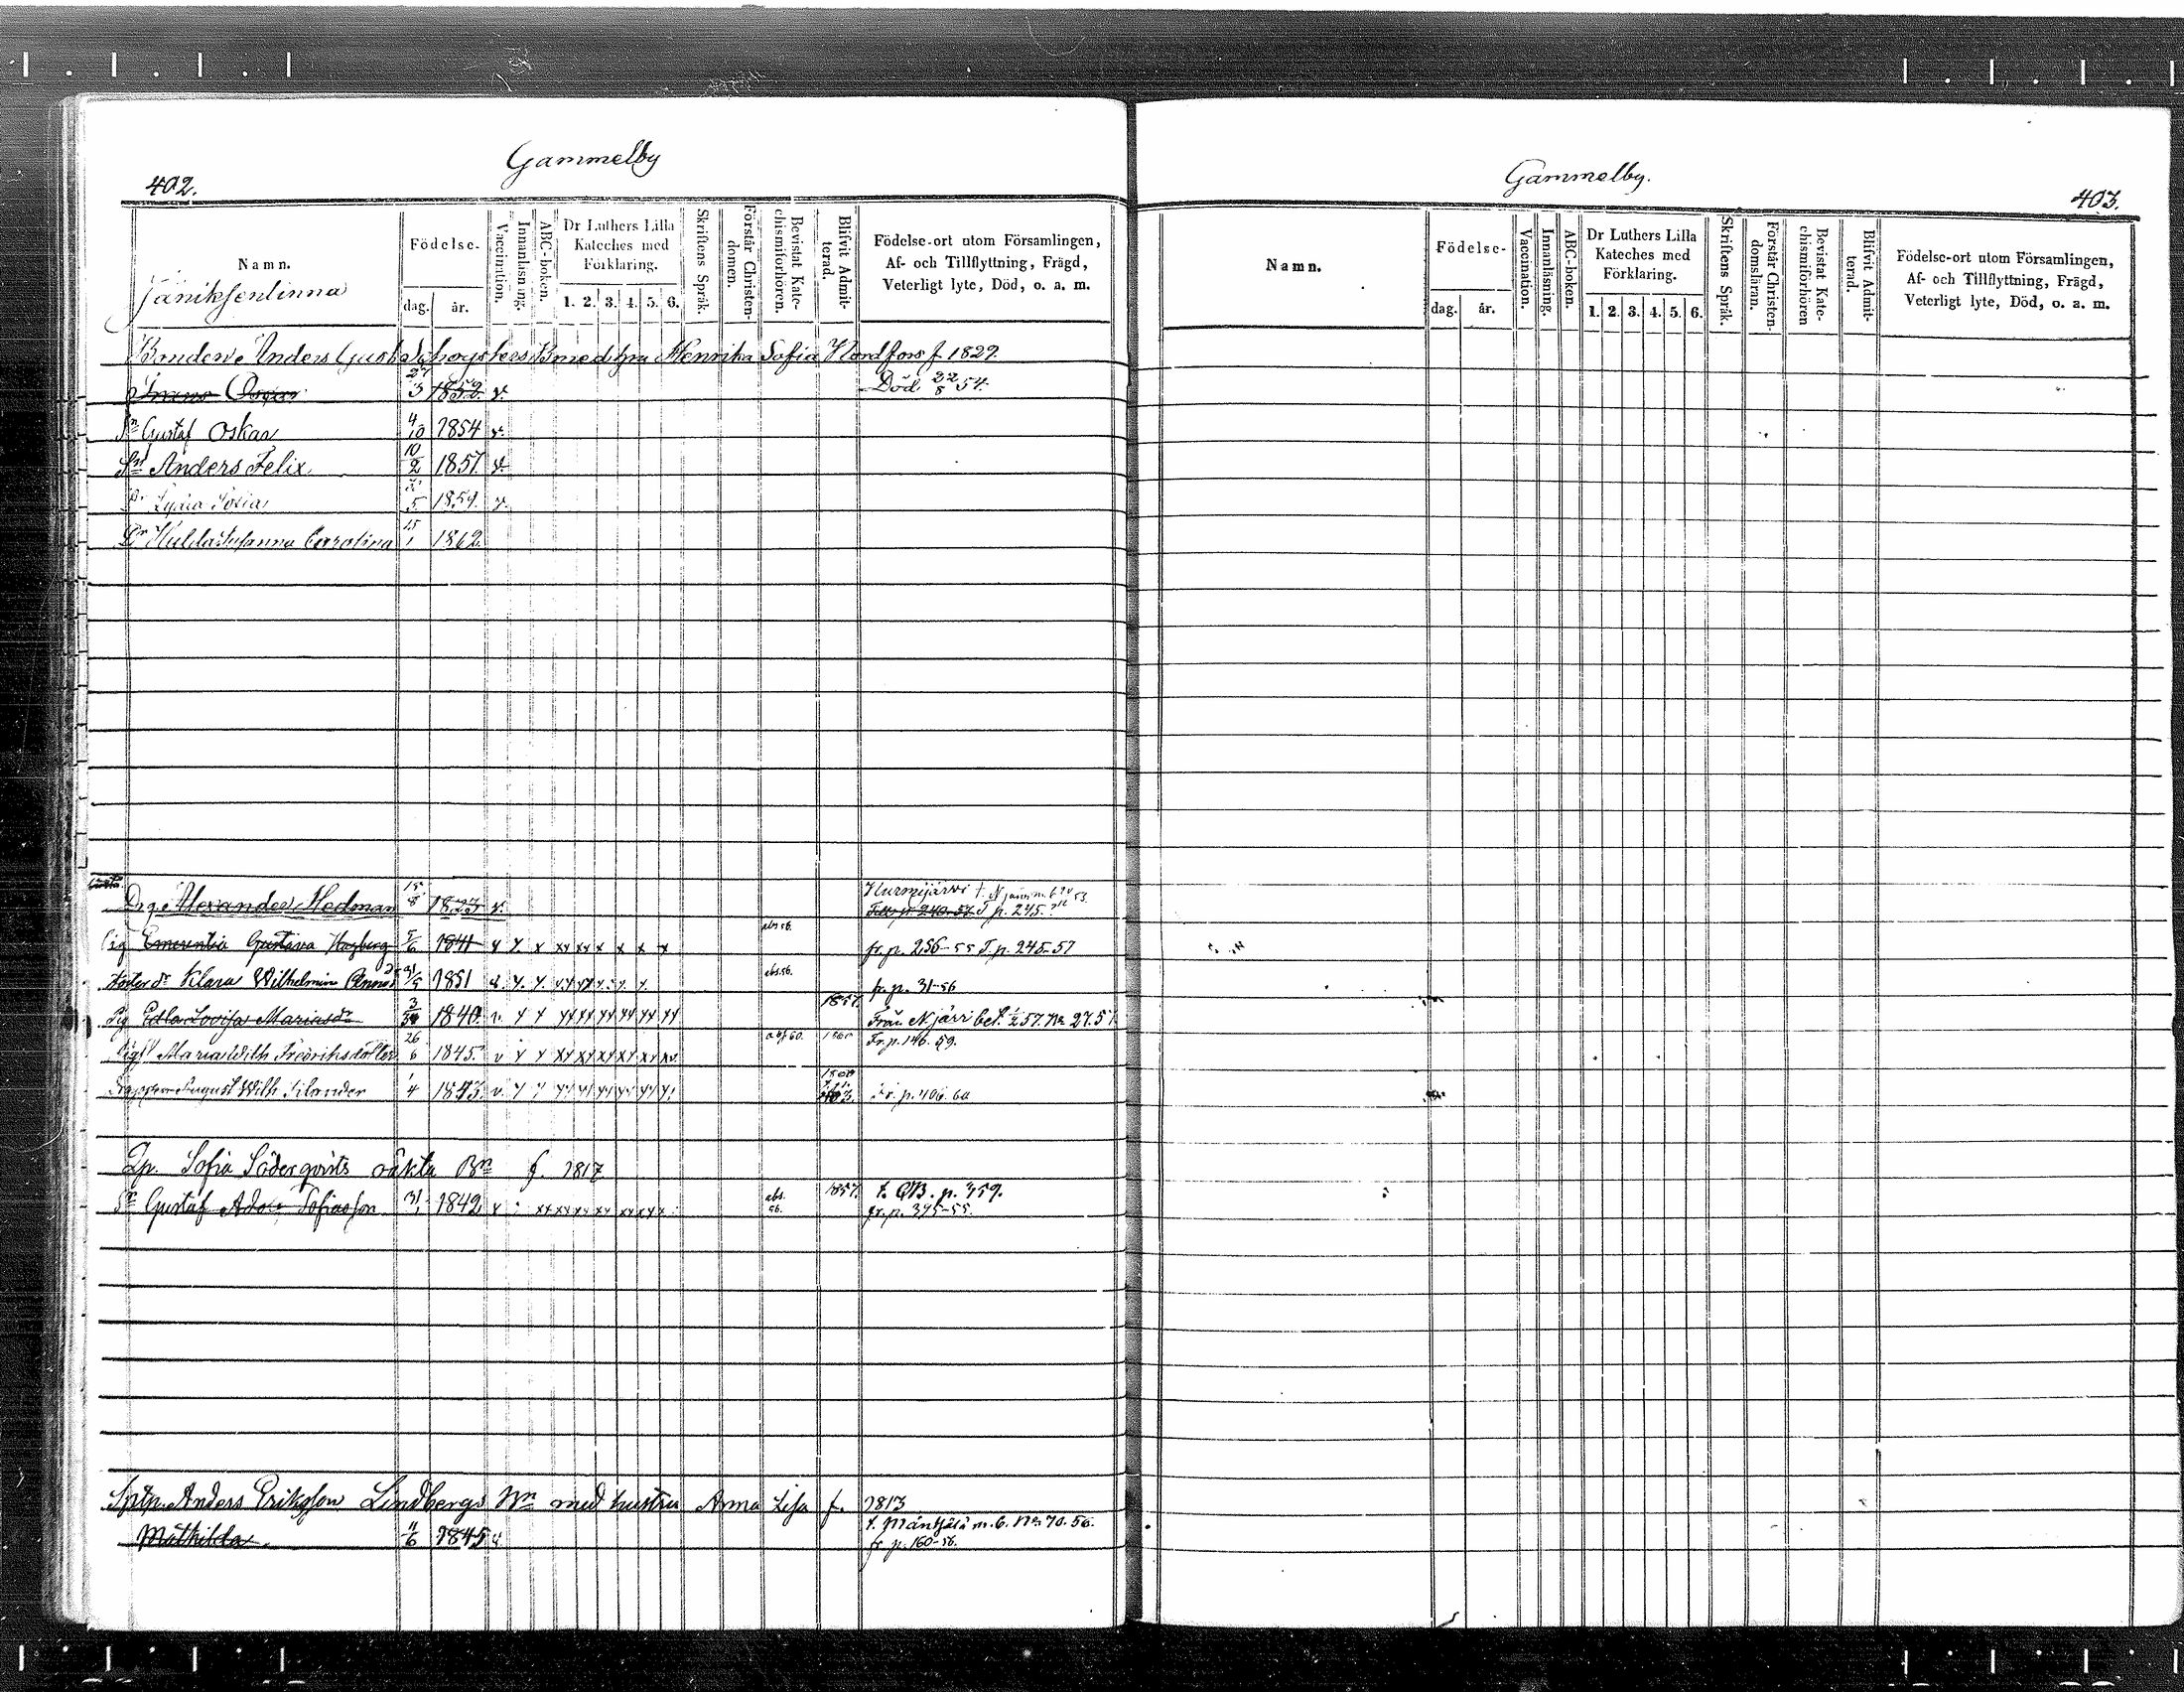 402.
Gammelby
Namn.
Jäniksenlinna
Födelse-
dag. år.
Vaccination.
Innanläsning.
ABC-boken.
Dr Luthers Lilla
Kateches med
Förklaring.
1. 2. 3. 4. 5. 6.
Skriftens Språk.
Förstår Christen-
domen.
Bevistat Kate-
chismiförhören.
Blifvit Admit-
terad.
Födelse-ort utom Församlingen,
Af- och Tillflyttning, Frägd,
Veterligt lyte, Död, o. a. m.
Bonden Anders Gust. Bn med hru Henrika Sofia Nordfors f 1829.
Frans Oskar 27/3 1852. v. Död 22/8 54.
Sn Gustaf Oskar 4/10 1854 v.
Sn Anders Felix 10/2 1857. v.
Dr Lydia Sofia 5 1859. v.
Dr Hulda Susanna Carolina 15/1 1862.
Drg. Alexander Hedman 8 1823 v. Nurmijärvi
T p. 245.
Pig Emerentia Gustava Hagberg 5/6 1841 v x x xx xx x x x x abs 56. fr. p. 256-55 T. p. 245-57
dr Klara Wilhelmin 31/5 1851 abs. 56. fr. p. 31-56
Pig Edla Lovisa Mariasdr 3 1840. v. 1857. Från N järvi bet. 1/2 57. No 27. 57
Maria Wilh Fredriksdotter 26/6 1845. v 60. 1860 Fr. p. 146. 59.
August Wilh Silander 1/4 1843. v. Fr. p. 406. 60
Qp. Sofia Söderqvists oäkta Bn f. 1817
Sn Gustaf Adolf Sofiasson 31/1 1842 v abs. 56. 1857. t. QB. p. 359.
fr. p. 395-55.
Anders Eriksson Lindbergs Bn med hustru Anna Lisa f. 1813
Mathilda 11/6 1845 v. t. Mäntsälä m. b. No 70. 56.
fr p. 160-56.
Gammelby.
403.
Namn.
Födelse-
dag. år.
Vaccination.
Innanläsning.
ABC-boken.
Dr Luthers Lilla
Kateches med
Förklaring.
1. 2. 3. 4. 5. 6.
Skriftens Språk.
Förstår Christen-
domsläran.
Bevistat Kate-
chismiförhören
Blifvit Admit-
terad.
Födelse-ort utom Församlingen,
Af- och Tillflyttning, Frägd,
Veterligt lyte, Död, o. a. m.